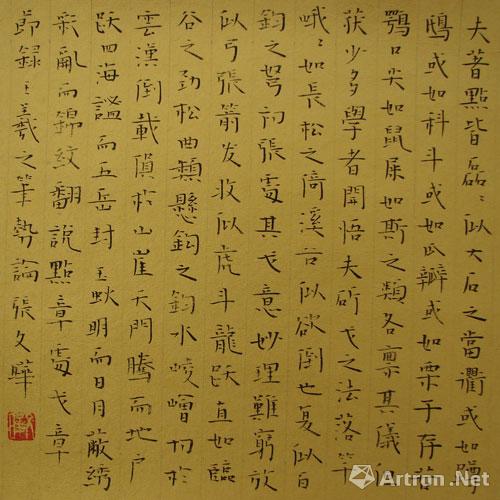 夫著點皆磊〻似大石之當衢或如蹲
鴟或如科斗或如瓜瓣或如栗子存若
鶚口尖如鼠屎如斯之類各禀其儀但
获少多學者開悟夫斫戈之法落竿
峨〻如長松之倚溪谷似欲倒也复似百
鈞之弩初張處其戈意妙理難窮放
似弓張箭发收似虎斗龍跃直如臨
谷之劲松曲類懸鉤之釣水崚嶒切於
雲漢倒載隕於山崖天門騰而地户
跃四海謐而五岳封王燄明而日月蔽绣
彩亂而錦紋翻說點章處戈章
節録王羲之筆勢論張文
Artron.Net